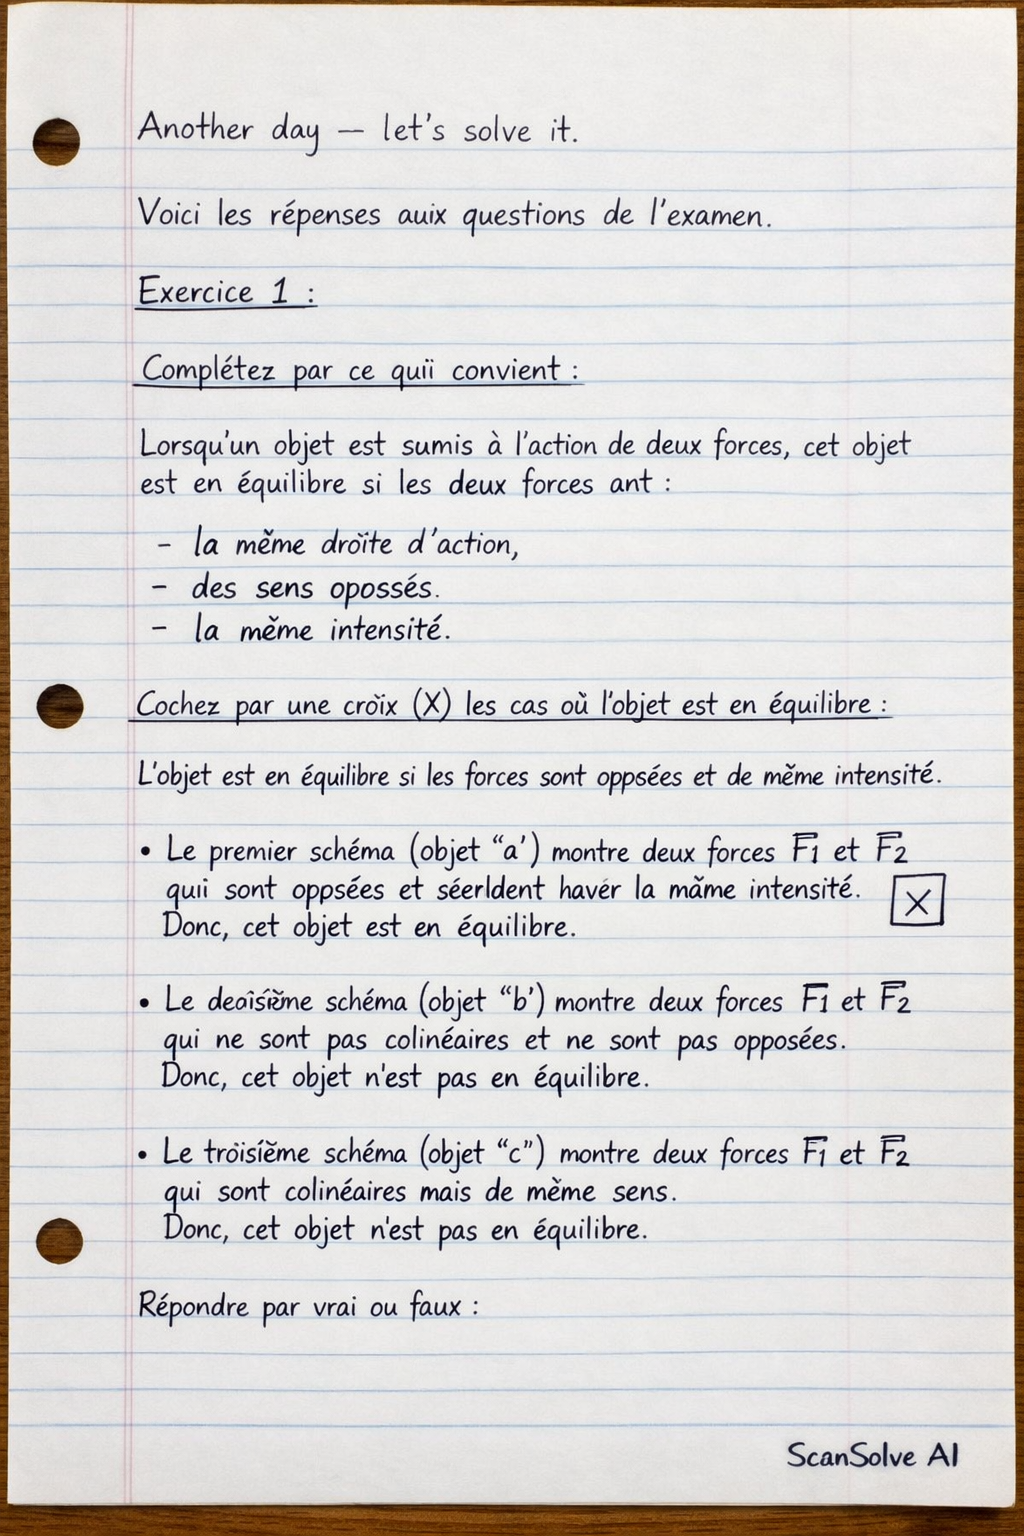 Another day — let's solve it.
Voici les répenses auix questions de l'examen.
Exercice 1 :
Complétez par ce quii convient :
Lorsqu'un objet est sumis à l'action de deux forces, cet objet
est en équilibre si les deux forces ant :
- la mĕme droïte d'action,
- des sens opossés.
- la mĕme intensité.
Cochez par une croïx (X) les cas où l'objet est en équilibre :
L'objet est en équilibre si les forces sont oppsées et de mĕme intensité.
• Le premier schéma (objet "a') montre deux forces F̅1 et F̅2
quii sont oppsées et séerldent havér la măme intensité.
X
Donc, cet objet est en équilibre.
• Le schéma (objet "b') montre deux forces F̅1 et F̅2
qui ne sont pas colinéaires et ne sont pas opposées.
Donc, cet objet n'est pas en équilibre.
• Le troïsíĕme schéma (objet "c") montre deux forces F̅1 et F̅2
qui sont colinéaires mais de mĕme sens.
Donc, cet objet n'est pas en équilibre.
Répondre par vrai ou faux :
ScanSolve AI